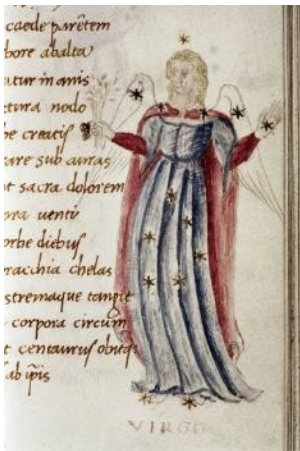 caede parētem
bore abalta
atur in amis
ctura nodo
be creatis
are sub auras
t sacra dolorem
ora uenti
orbe diebus
racchia chelas
stremaque tangit
corpora circum
t centaurus obuq
sab ipis
VIRGO